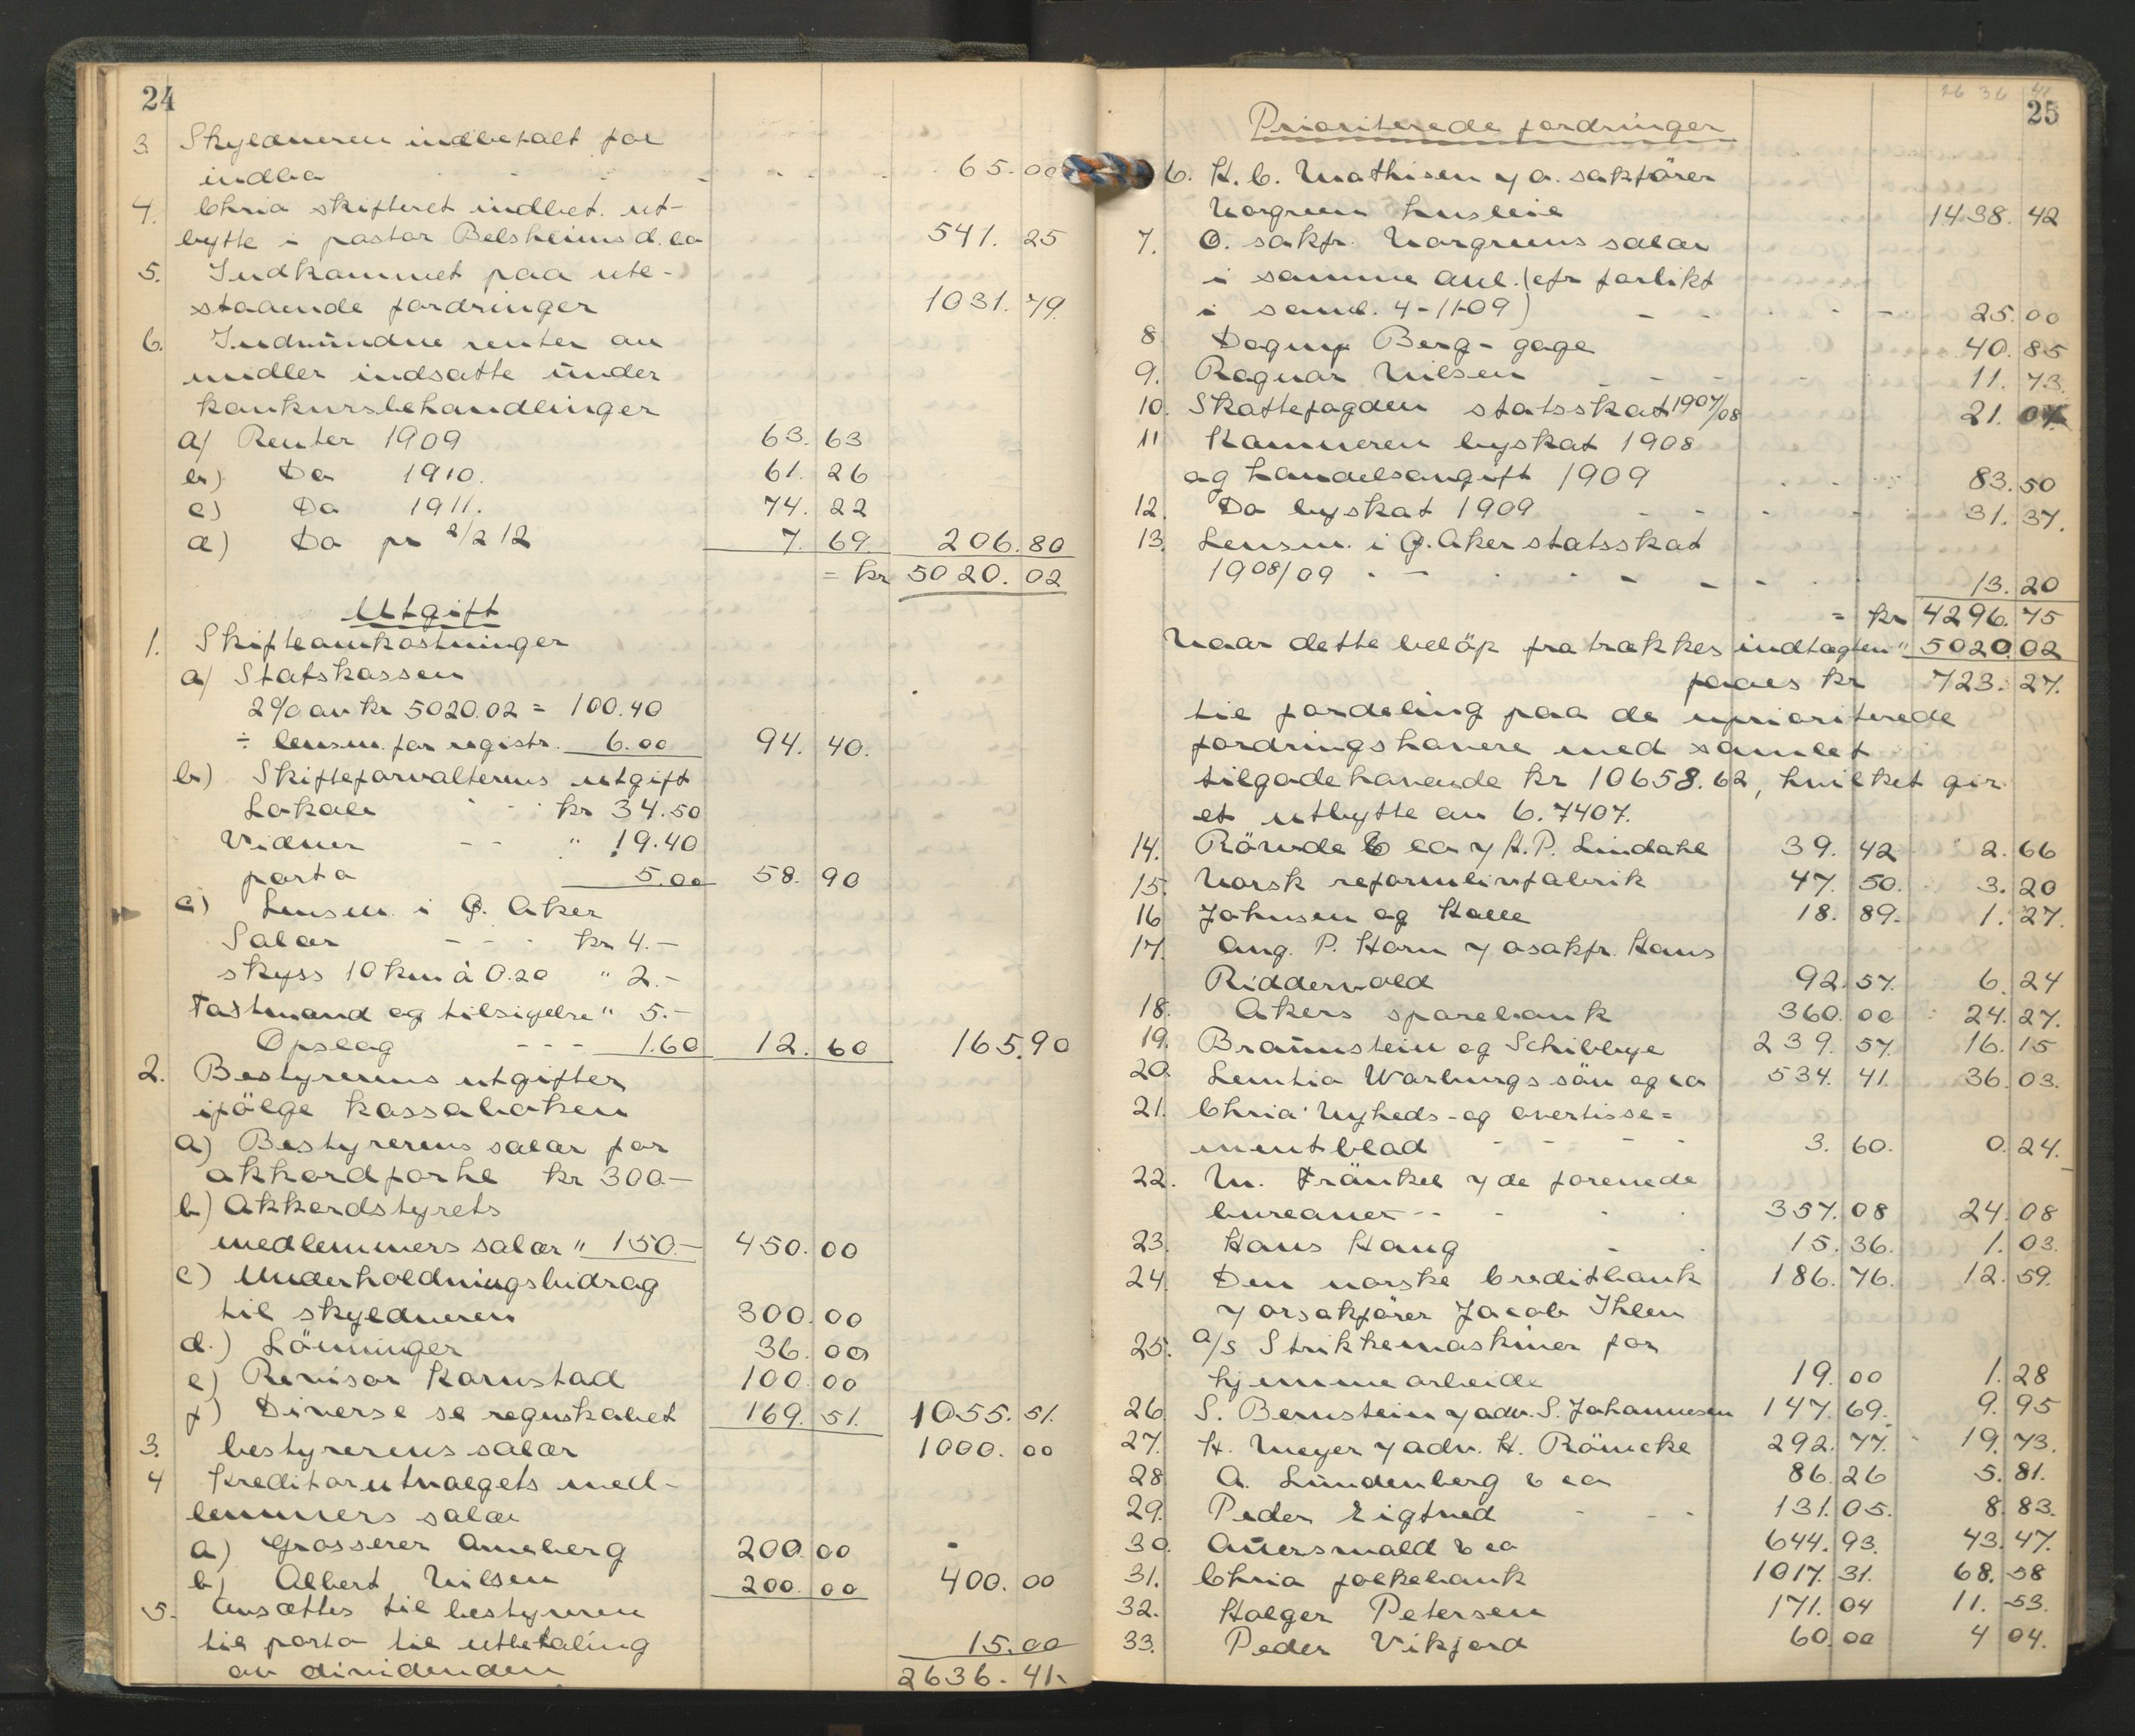 24
3. Skyldneren indbetalt for
indbo - - - 65.00
4. Chria skifteret indbet. ut-
bytte i pastor Belsheims d.bo 541.25
5. Indkommet paa ute-
staaende fordringer 1031.79.
6. Indvundne renter av
midler indsatte under
konkursbehandlinger
a) Renter 1909 63.63
b) Do 1910. 61.26
c) Do 1911. 74.22
d) Do pr 2/2 12 7.69. 206.80
= kr 5020.02
Utgift
1. Skifteomkostninger
a) Statskassen
2% av kr 5020.02 = 100.40
÷ lensm. for registr. 6.00 94.40.
b) Skifteforvalterens utgift
Lokale - - kr 34.50
Vidner - - " 19.40
porto 5.00 58.90
c) Lensm. i Ø. Aker
Salær - - - kr 4.-
skyss 10 km à 0.20 " 2.-
Tastmand og tilsigelse " 5.-
Opslag - - - 1.60 12.60 165.90
2. Bestyrerens utgifter
ifölge kassaboken
a) Bestyrerens salær for
akkordforhl kr 300.-
b) Akkordstyrets
medlemmers salær " 150.- 450.00
c) Underholdningsbidrag
til skyldneren 300.00
d.) Lönninger 36.00
e) Revisor Kornstad 100.00
f) Diverse se regnskabet 169.51. 1055.51.
3. bestyrerens salær 1000.00
4 Kreditorutvalgets med-
lemmers salær
a) Grosserer Ameberg 200.00
b) Albert Nilsen 200.00 400.00
5. Ansættes til bestyreren
til porto til utbetaling 15.00
av dividenden 2636.41.
26 36 41
25
Prioriterede fordringer
6. H. C. Mathisen v/ o. sakförer
Norgreen husleie 1438.42
7. O. sakfr. Norgreens salær
i samme anl. (efr forlikt
i saml. 4-11-09) - - - 25.00
8 Dagny Berg - gage 40.85
9. Ragnar Nilsen - - - 11.73.
10. Skattefogden statsskat 1907/08 21.07
11 Kæmneren byskat 1908
og handelsavgift 1909 83.50
12. Do byskat 1909 - - - 31.37.
13. Lensm. i Ø. Aker statsskat
1908/09 - - - 13.20
= kr 4296.75
Naar dette belöp fratrækkes indtægten " 5020.02
faaes kr 723.27.
til fordeling paa de uprioriterede
fordringshavere med samlet
tilgodehavende kr 10658.62, hvilket gir
et utbytte av 6.7407.
14. Rövde & co v/ H.P. Lindahl 39.42 2.66
15. Norsk reformlinfabrik 47.50. 3.20
16 Johnsen og Halle 18.89. 1.27.
17. Aug. P. Horn v/ osakfr. Hans
Riddervold 92.57. 6.24
18. Akers sparebank 360.00 24.27.
19. Braunstein og Schibbye 239.57. 16.15
20. Levitia Warburgs sön og co 534.41. 36.03.
21. Chria Nyheds- og avertisse=
mentblad - - - 3.60. 0.24.
22. M. Fränkel v/ de forenede
bureauer - - 357.08 24.08
23. Hans Haug - 15.36. 1.03.
24. Den norske Creditbank 186.76. 12.59.
v/ orsakförer Jacob Ihlen
25. a/s Strikkemaskiner for
hjemmearbeide 19.00 1.28
26. S. Bernstein v/ adv. S. Johannesen 147.69. 9.95
27. H. Meyer v/ adv. H. Römcke 292.77. 19.73.
28 A. Lundenberg & co 86.26 5.81.
29. Peder Eigtved - - - 131.05. 8.83.
30. Auerswald & co 644.93. 43.47.
31. Chria folkebank 1017.31. 68.58
32. Holger Petersen 171.04 11.53.
33. Peder Vikjord 60.00 4.04.